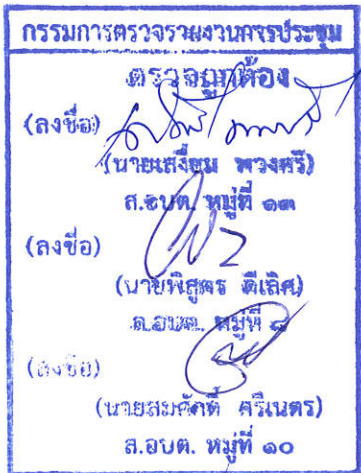 กรรมการตรวจรายงานการประชุม
ตรวจถูกต้อง
(ลงชื่อ)
(นายเสงี่ยม พวงศรี)
ส.อบต. หมู่ที่ ๑๓
(ลงชื่อ)
(นายพิสูตร ดีเลิศ)
ส.อบต. หมู่ที่ ๘
(ลงชื่อ)
(นายสมศักดิ์ ศรีเนตร)
ส.อบต. หมู่ที่ ๑๐